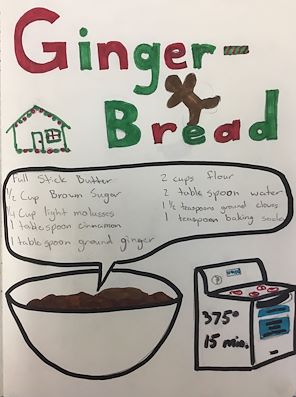 Ginger-
Bread
Full Stick Butter
1/2 Cup Brown Sugar
1/4 Cup light molasses
1 tablespoon cinnamon
1 tablespoon ground ginger
2 cups flour
2 tablespoon water
1 1/2 teaspoons ground cloves
1 teaspoon baking soda
375°
15 min.